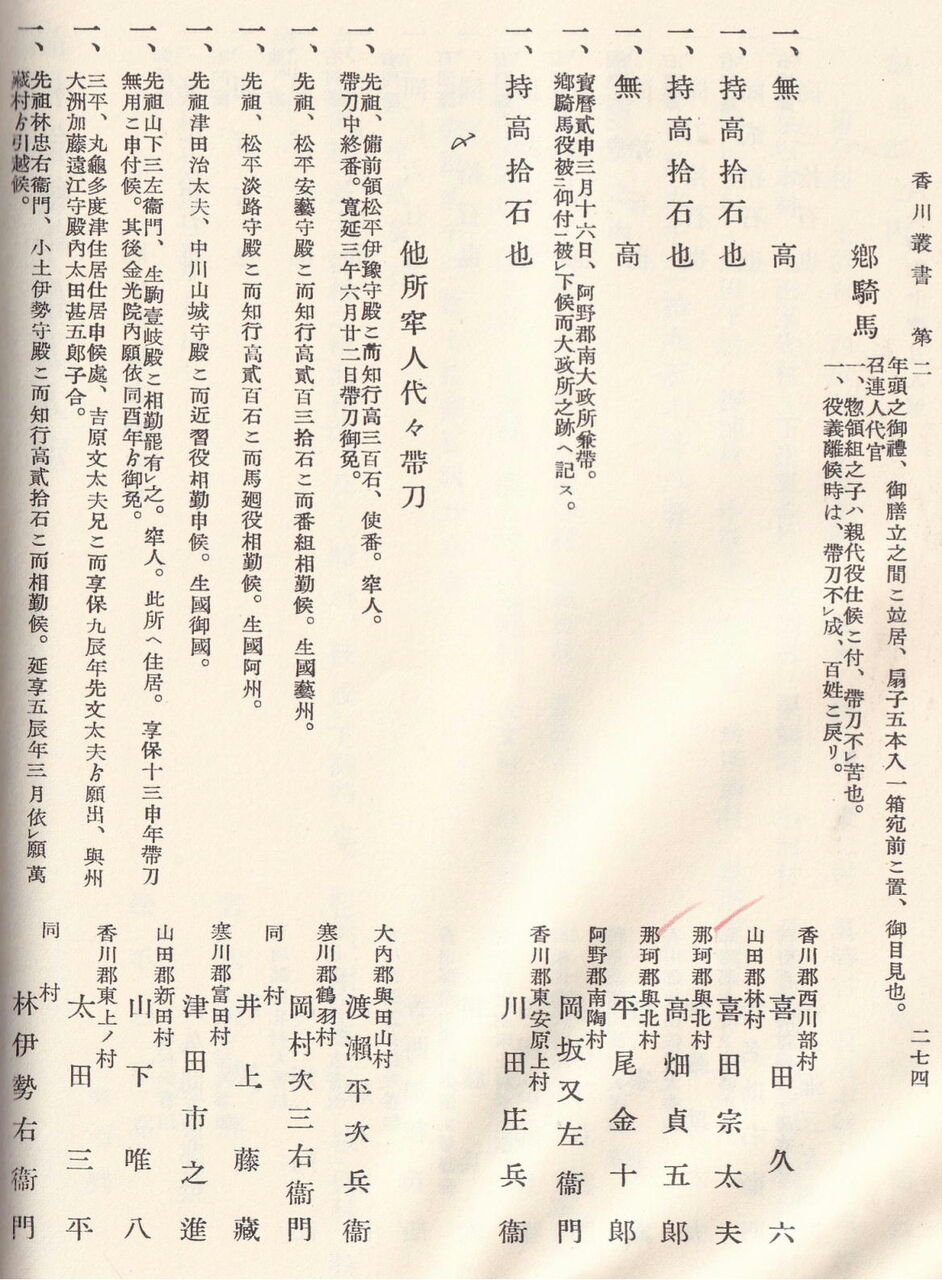 香川叢書　第二
二七四
鄕騎馬
年頭之御禮、御膳立之間ニ竝居、扇子五本入一箱宛前ニ置、御目見也。
召連人代官
一、惣領組之子ハ親代役仕候ニ付、帶刀不レ苦也。
一、役義離候時は、帶刀不レ成、百姓ニ戾リ。
一、無高
香川郡西川部村
喜田久六
一、持高拾石也
山田郡林村
喜田宗太夫
一、持高拾石也
那珂郡與北村
高畑貞五郞
一、無高
那珂郡與北村
平尾金十郞
一、寶曆貳申三月十六日、阿野郡南大政所兼帶。
鄕騎馬役被二仰付一被レ下候而大政所之跡ヘ記ス。
阿野郡南陶村
岡坂又左衞門
一、持高拾石也
香川郡東安原上村
川田庄兵衞
〆
他所窂人代々帶刀
一、先祖、備前領松平伊豫守殿ニ而知行高三百石、使番。窂人。
帶刀中終番。寬延三午六月廿二日帶刀御免。
大內郡與田山村
渡瀨平次兵衞
一、先祖、松平安藝守殿ニ而知行高貳百三拾石ニ而番組相勤候。生國藝州。
寒川郡鶴羽村
岡村次三右衞門
一、先祖、松平淡路守殿ニ而知行高貳百石ニ而馬廻役相勤候。生國阿州。
同村
井上藤藏
一、先祖津田治太夫、中川山城守殿ニ而近習役相勤申候。生國御國。
寒川郡富田村
津田市之進
一、先祖山下三左衞門、生駒壹岐殿ニ相勤罷有レ之。窂人。此所ヘ住居。享保十三申年帶刀
無用ニ申付候。其後金光院內願依同酉年ゟ御免。
山田郡新田村
山下唯八
一、三平、丸龜多度津住居仕居申候處、吉原文太夫兄ニ而享保九辰年先文太夫ゟ願出、與州
大洲加藤遠江守殿內太田甚五郞子合。
香川郡東上ノ村
太田三平
一、先祖林忠右衞門、小土伊勢守殿ニ而知行高貳拾石ニ而相勤候。延享五辰年三月依レ願萬
藏村ゟ引越候。
同村
林伊勢右衞門